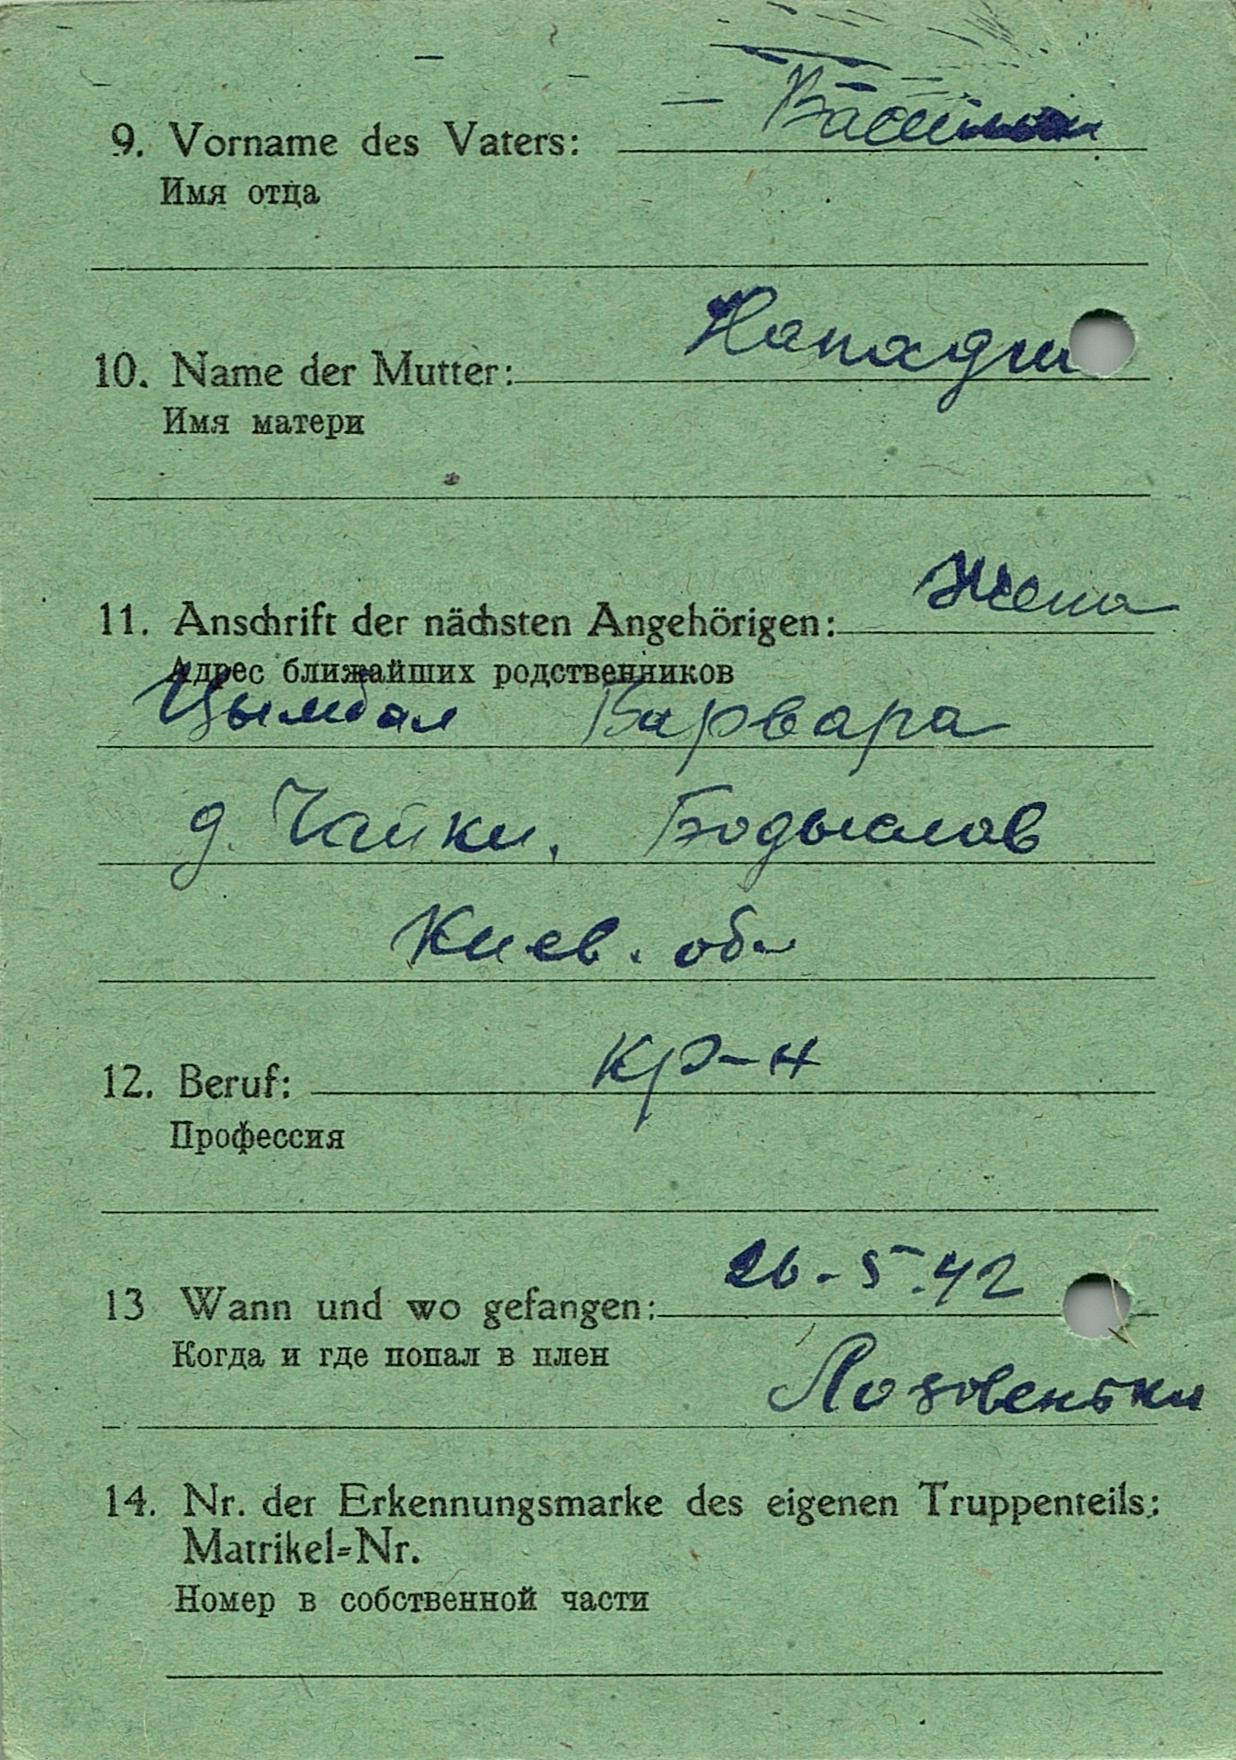 9. Vorname des Vaters:
Имя отца
10. Name der Mutter:
Имя матери
11. Anschrift der nächsten Angehörigen: Жена
Адрес ближайших родственников
Цымбал Варвара
д. Чайки, Бодыалов
Киев. об
12. Beruf: кр-н
Профессия
13 Wann und wo gefangen: 26-5.42
Когда и где попал в плен
Лозовеньки
14. Nr. der Erkennungsmarke des eigenen Truppenteils:
Matrikel-Nr.
Номер в собственной части